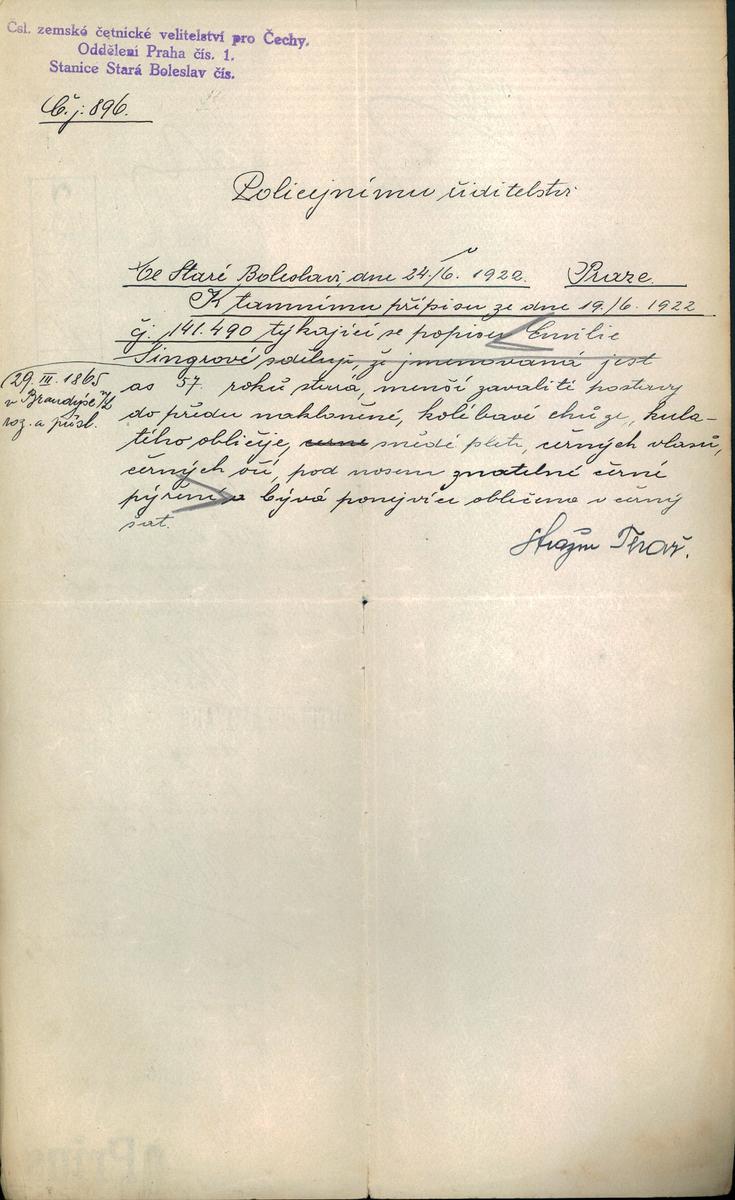 Čsl. zemské četnické velitelství pro Čechy.
Oddělení Praha čís. 1.
Stanice Stará Boleslav čís.
Č.j: 896.
Policejnímu ředitelství
v
Ve Staré Boleslavi, dne 24./6. 1922. Praze.
K tamnímu přípisu ze dne 19./6. 1922
č. 141.490 týkající se popisu Emilie
Singrové sděluji, že jmenovaná jest
29. III. 1865
v Brandýse n/L
roz. a přísl.
as 57 roků stará, menší zavalité postavy
do předu nakloněné, kolébavé chůze, kula-
tého obličeje, černé snědé pleti, černých vlasů,
černých očí, pod nosem znatelné černé
pýření a bývá ponejvíce oblečena v černý
šat.
Stražm